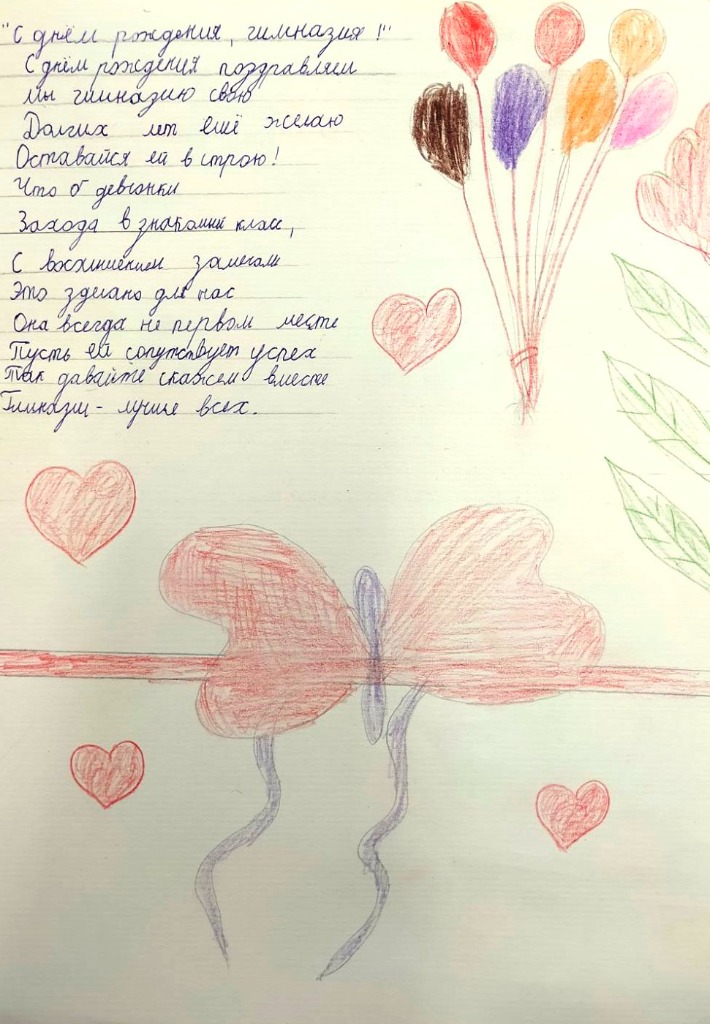 "С днём рождения, гимназия!"
С днём рождения поздравляем
Мы гимназию свою
Долгих лет ещё желаю
Оставайся ей в строю!
Что б девчонки
Заходя в знакомый класс,
С восхищением замечали
Это зделано для нас
Она всегда не первом месте
Пусть ей сопутствует успех
Так давайте скажем вместе
Гимназия - лучше всех.